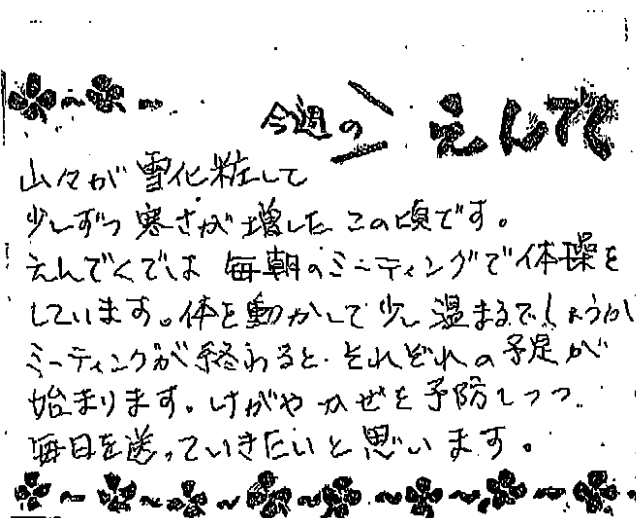 今週の えんでく
山々が雪化粧して
少しずつ寒さが増したこの頃です。
えんでくでは毎朝のミーティングで体操を
しています。体を動かして少し温まるでしょうか
ミーティングが終わると、それぞれの予定が
始まります。けがやかぜを予防しつつ
毎日を送っていきたいと思います。